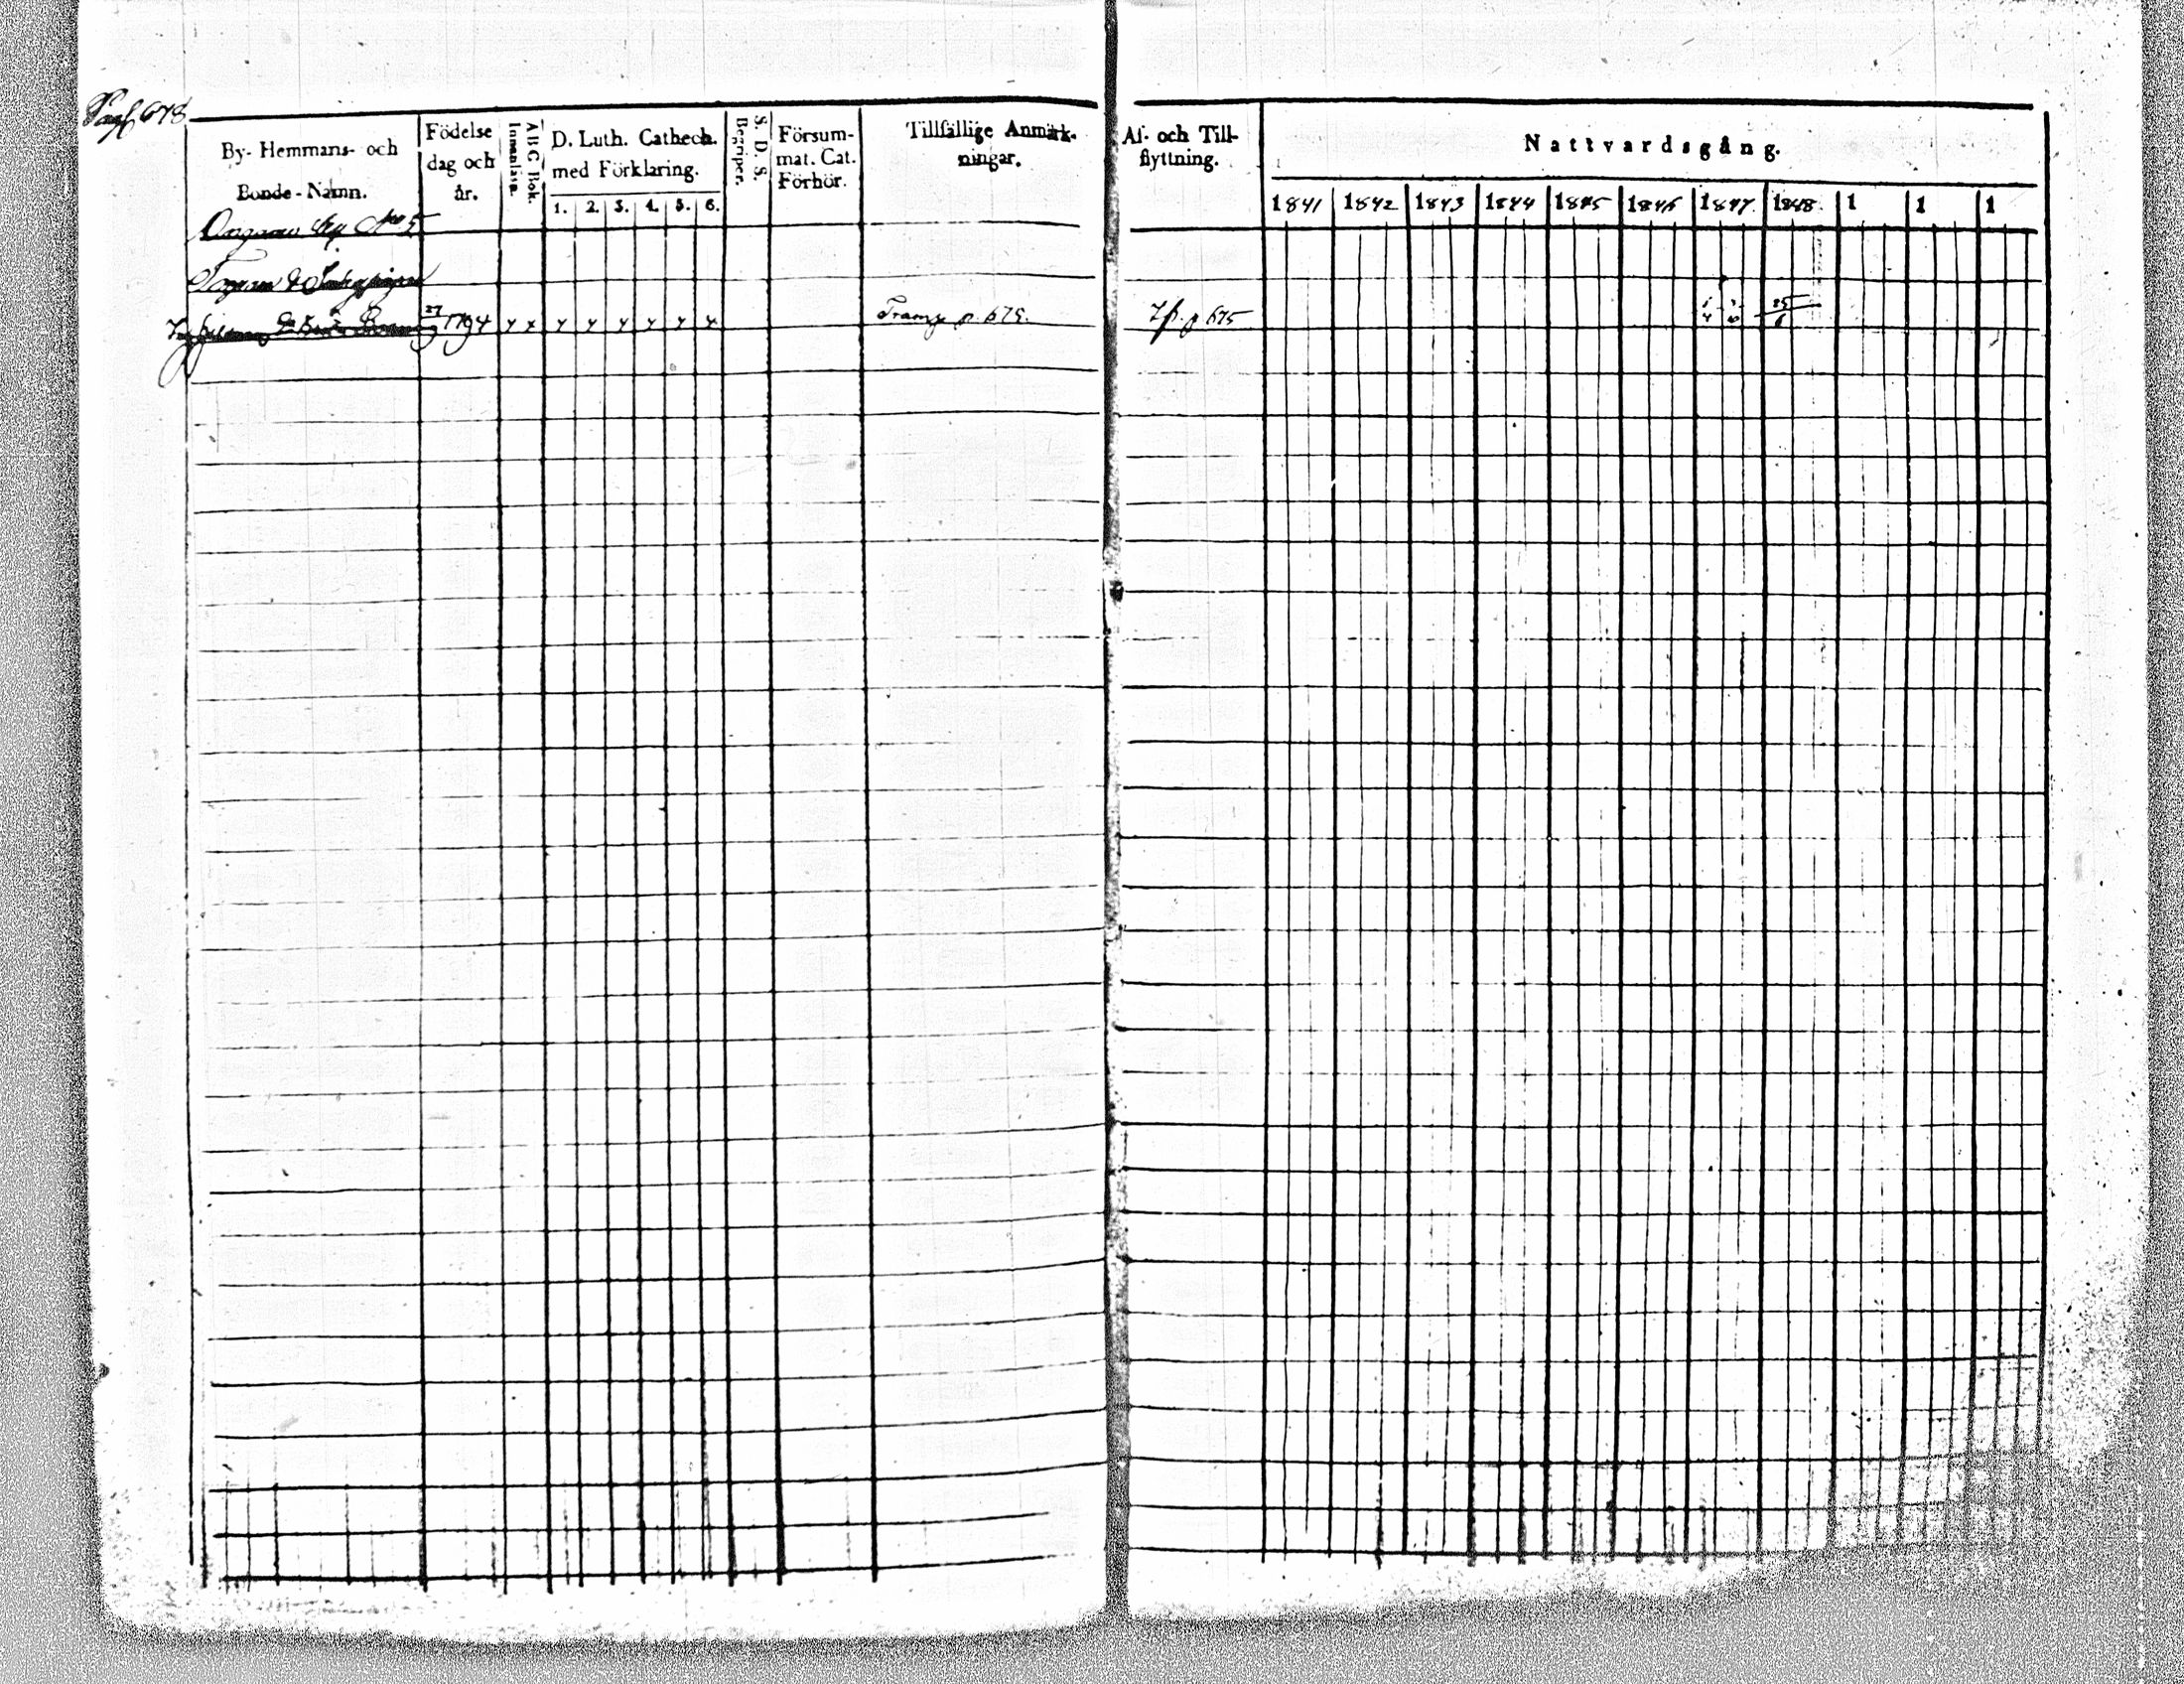 Pag. 678
By- Hemmans- och
Bonde-Namn.
Födelse
dag och
år.
ABC Bok.
Innanläsn.
D. Luth. Cathech.
med Förklaring.
1. 2. 3. 4. 5. 6.
S. D. S.
Begriper.
Försum-
mat. Cat.
Förhör.
Tillfällige Anmärk-
ningar.
Af- och Till-
flyttning.
Nattvardsgång.
1841 1842 1843 1844 1845 1846 1847. 1848. 1 1 1
No 5
27 1794 p. 675. p 675 25/6